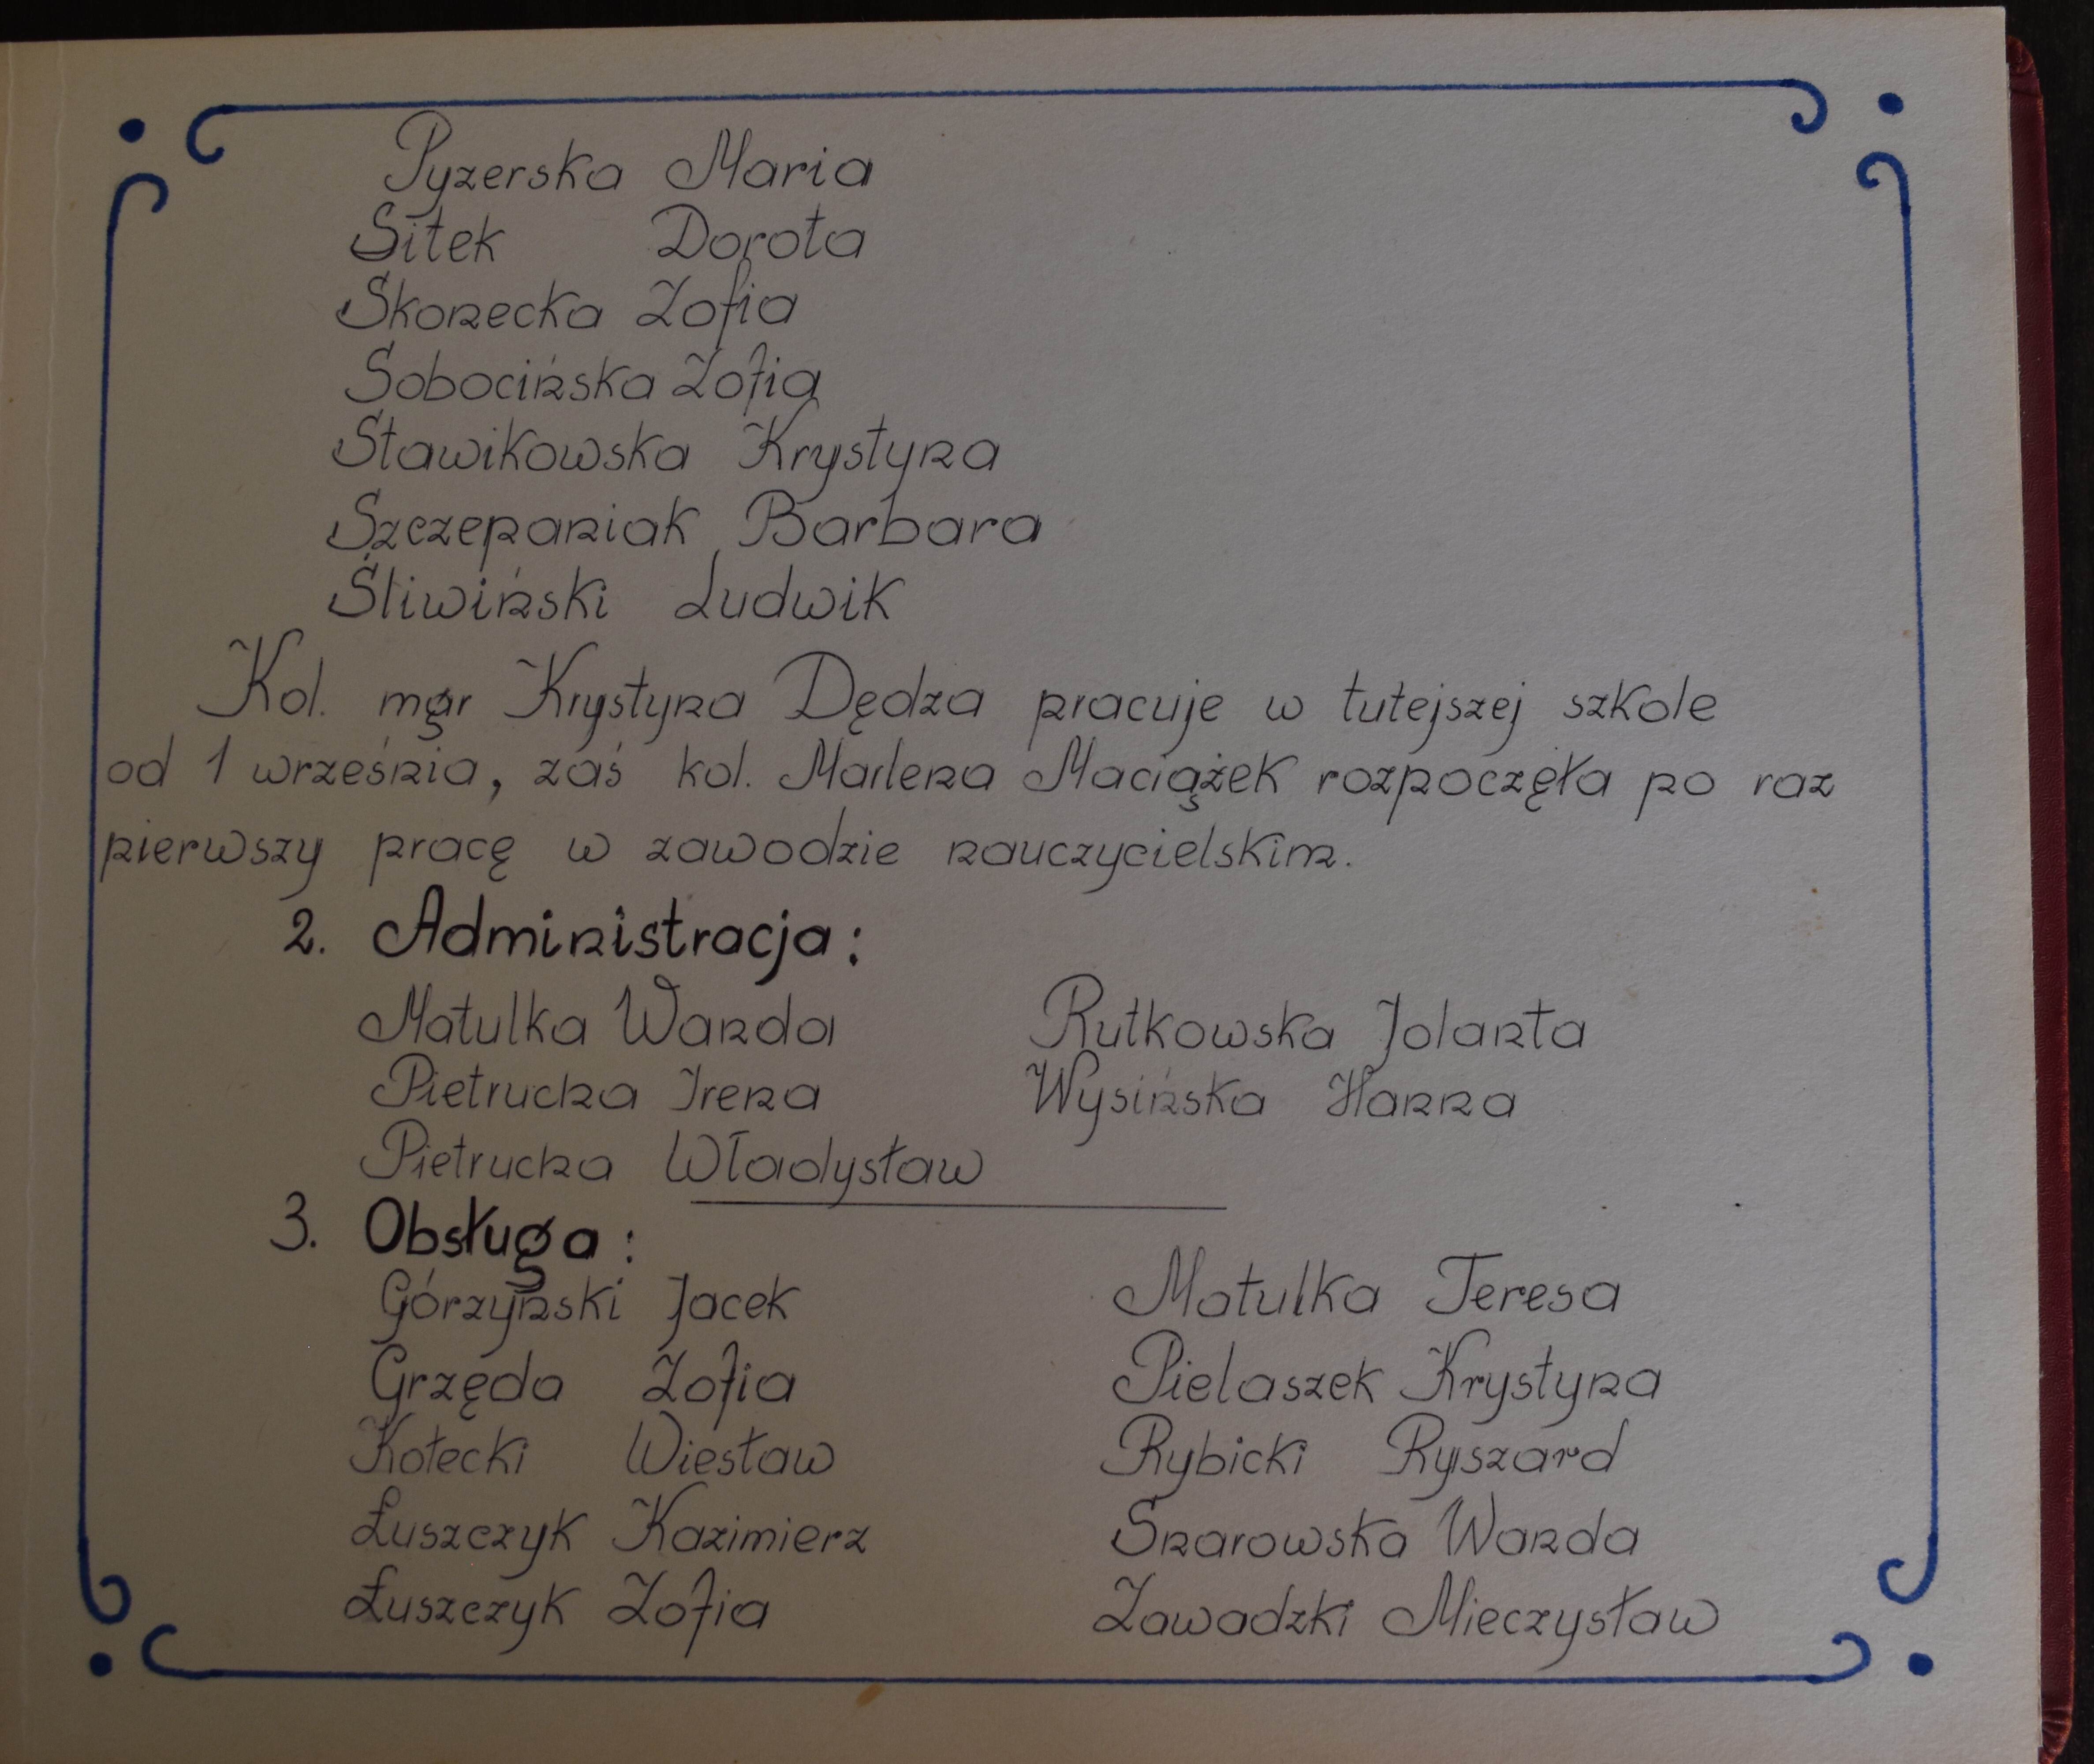 Pyzerska Maria
Sitek Dorota
Skonecka Zofia
Sobocińska Zofia
Stawikowska Krystyna
Szczepaniak Barbara
Śliwiński Ludwik
Kol. mgr Krystyna Dędza pracuje w tutejszej szkole
od 1 września, zaś kol. Marlena Maciążek rozpoczęła po raz
pierwszy pracę w zawodzie nauczycielskim.
2. Administracja:
Matulka Wanda Rutkowska Jolanta
Pietrucha Irena Wysińska Hanna
Pietrucha Władysław
3. Obsługa:
Górzyński Jacek Matulka Teresa
Grzęda Zofia Pielaszek Krystyna
Kołecki Wiesław Rybicki Ryszard
Łuszczyk Kazimierz Snarowska Wanda
Łuszczyk Zofia Zawadzki Mieczysław